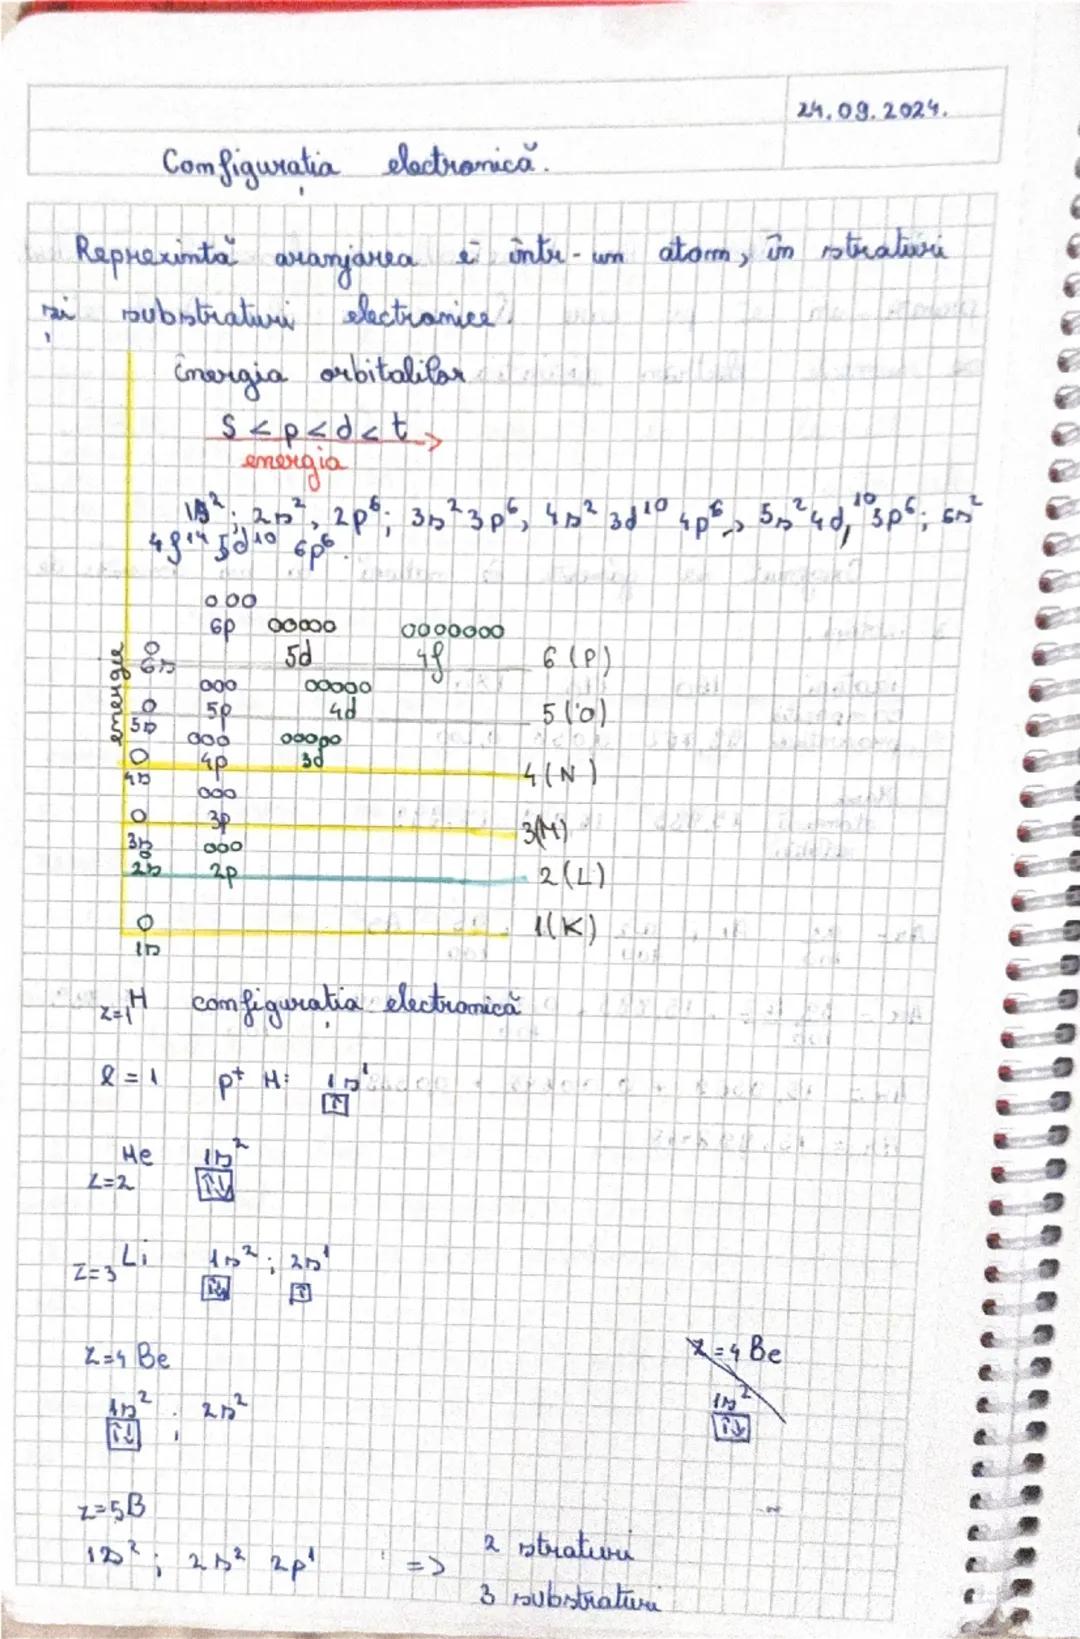 24.09.2024.
Configurația electronică.
Reprezintă aranjarea ē într-un atom, în straturi
și substraturi electronice.
Energia orbitalilor
S < p < d < t →
energia
1s²; 2s², 2p⁶; 3s² 3p⁶, 4s² 3d¹⁰ 4p⁶, 5s² 4d¹⁰, 5p⁶; 6s²
4f¹⁴ 5d¹⁰ 6p⁶.
energie
6p
6s 5d 4f 6 (P)
5s 5p 4d 5 (O)
4s 4p 3d 4 (N)
3s 3p 3(M)
2s 2p 2(L)
1s 1(K)
z=1 H configurația electronică
l = 1 p⁺ H: 1s¹
↑
He 1s²
Z=2 ↑↓
Z=3 Li 1s²; 2s¹
↑↓ ↑
Z=4 Be
1s²; 2s²
↑↓
Z=4 Be
1s²
↑↓
Z=5 B
1s²; 2s² 2p¹ => 2 straturi
3 substraturi